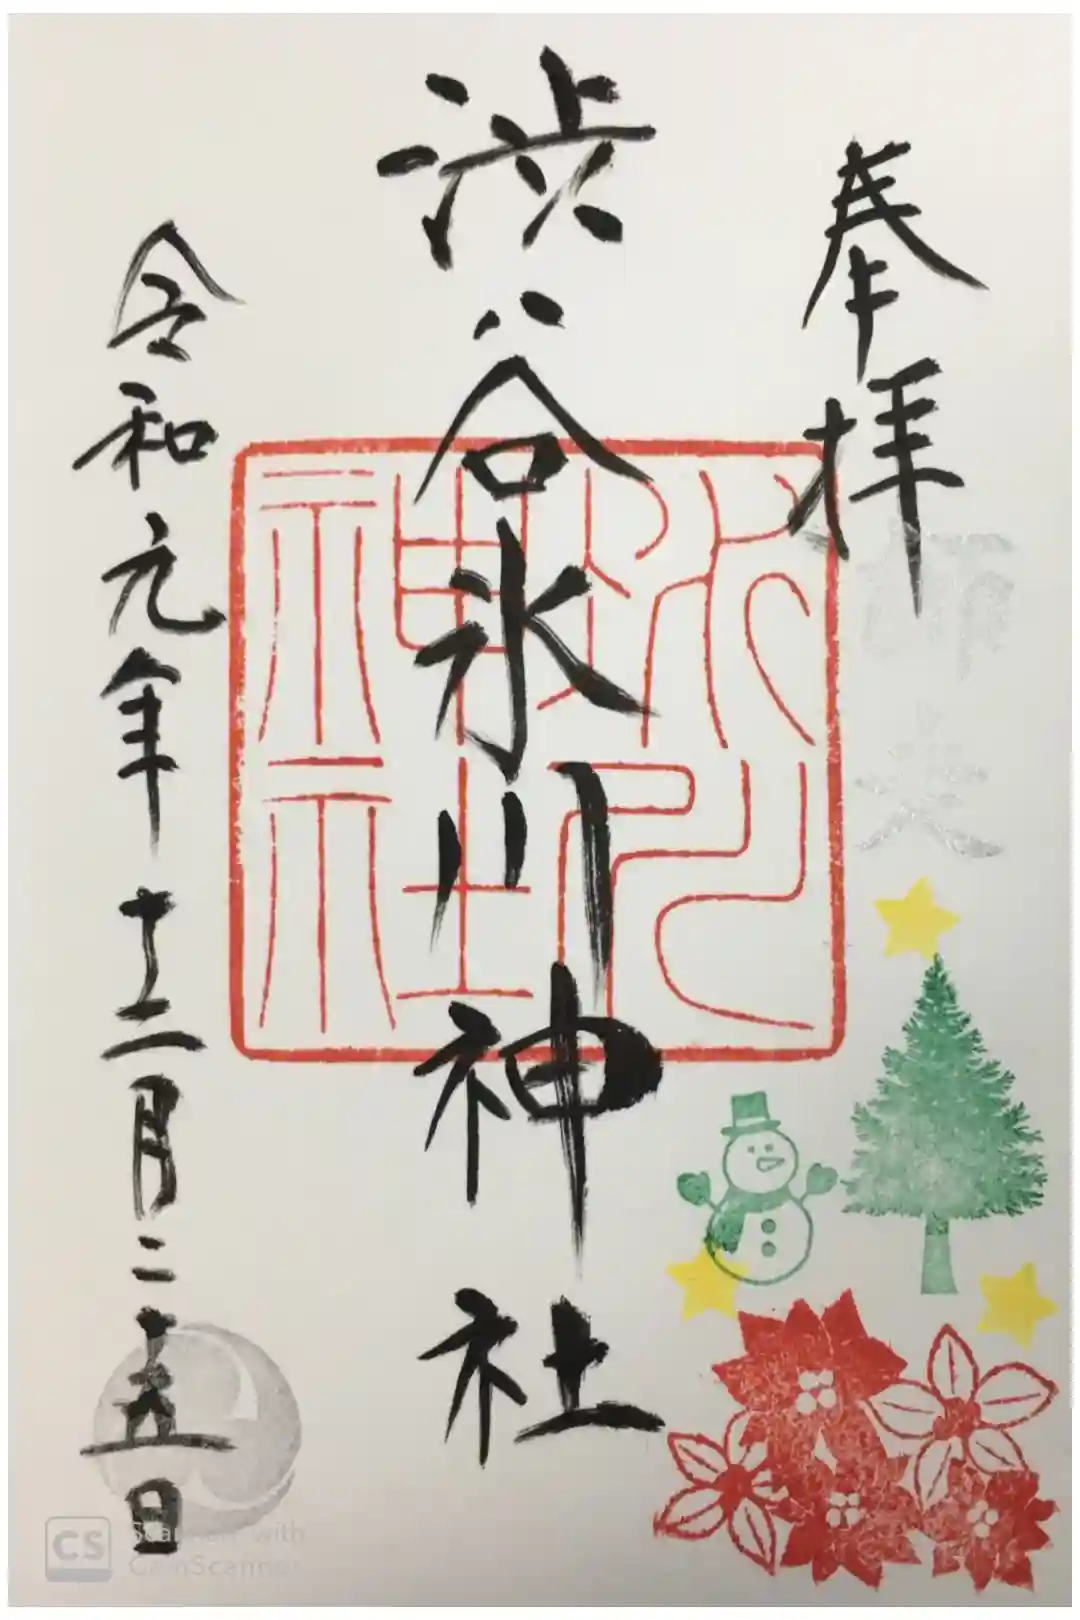 奉拝
御嶽
渋谷氷川神社
氷川神社
令和元年十二月二十五日
CS Scanned with
CamScanner